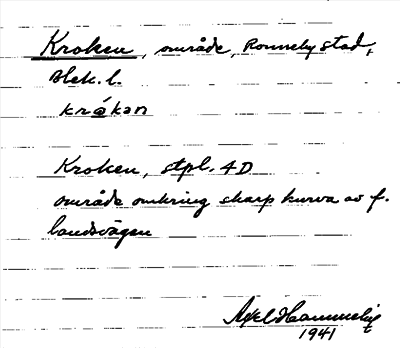 Kroken, område, Ronneby stad,
Blek. l.
kråkən
Kroken, stpl. 4D
område omkring skarp kurva av f.
landsvägen
Axel Hammelig
1941